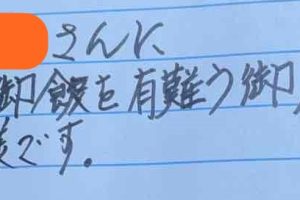 さんに
御飯を有難う御
です。